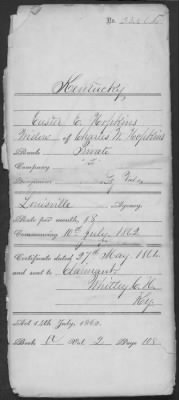 No.
Kentucky
Easter C. Hopkins
Widow of Charles W Hopkins
Rank Private
Company "I"
Regiment
Louisville Agency.
Rate per month, $8
Commencing 10th July 1862
Certificate dated 27th May 1864
and sent to Claimant
Whitley C. H.
Ky.
Act 14th July, 1862.
Book Vol. 2 Page 108